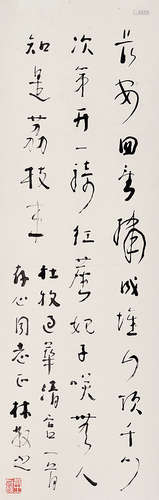 长安回望绣成堆山顶千门
次第开一骑红尘妃子笑无人
知是荔枝来
杜牧过华清宫一首
存心同志正 林散之